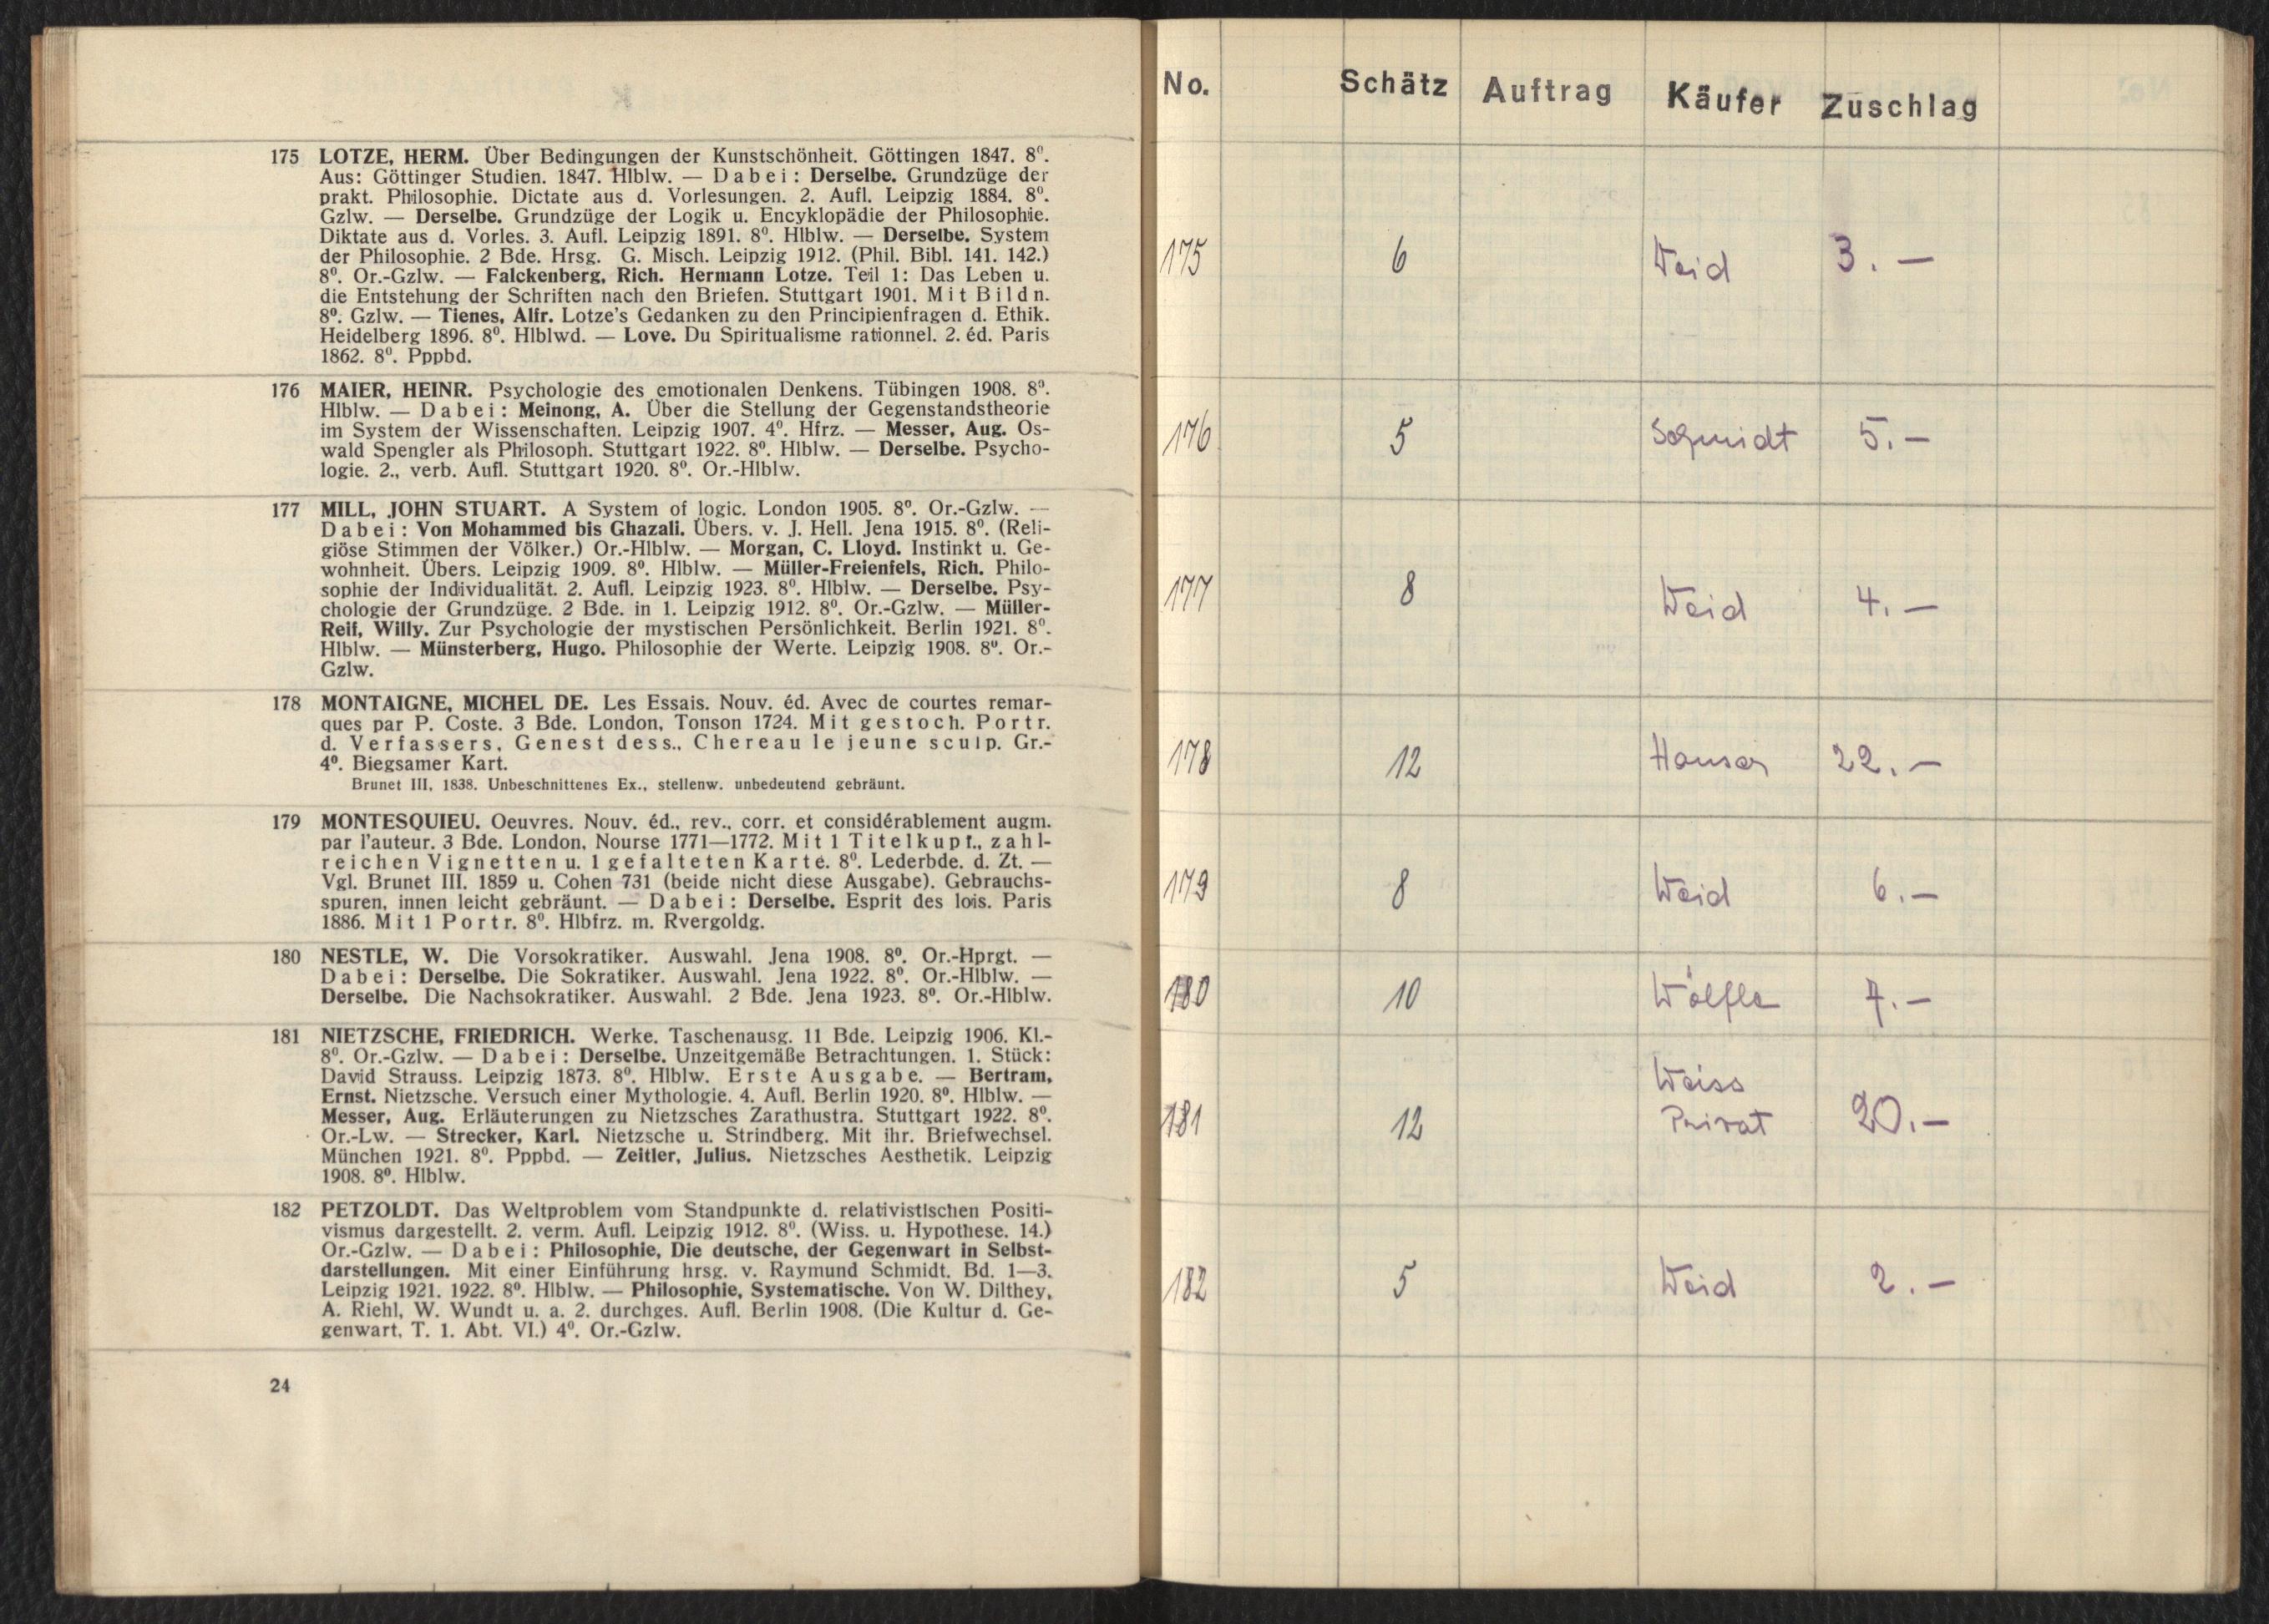 175 LOTZE, HERM. Über Bedingungen der Kunstschönheit. Göttingen 1847. 8⁰.
Aus: Göttinger Studien. 1847. Hlblw. — Dabei: Derselbe. Grundzüge der
prakt. Philosophie. Dictate aus d. Vorlesungen. 2. Aufl. Leipzig 1884. 8⁰.
Gzlw. — Derselbe. Grundzüge der Logik u. Encyklopädie der Philosophie.
Diktate aus d. Vorles. 3. Aufl. Leipzig 1891. 8⁰. Hlblw. — Derselbe. System
der Philosophie. 2 Bde. Hrsg. G. Misch. Leipzig 1912. (Phil. Bibl. 141. 142.)
8⁰. Or.-Gzlw. — Falckenberg, Rich. Hermann Lotze. Teil 1: Das Leben u.
die Entstehung der Schriften nach den Briefen. Stuttgart 1901. Mit Bildn.
8⁰. Gzlw. — Tienes, Alfr. Lotze's Gedanken zu den Principienfragen d. Ethik.
Heidelberg 1896. 8⁰. Hlblwd. — Love. Du Spiritualisme rationnel. 2. éd. Paris
1862. 8⁰. Pppbd.
176 MAIER, HEINR. Psychologie des emotionalen Denkens. Tübingen 1908. 8⁰.
Hlblw. — Dabei: Meinong, A. Über die Stellung der Gegenstandstheorie
im System der Wissenschaften. Leipzig 1907. 4⁰. Hfrz. — Messer, Aug. Os-
wald Spengler als Philosoph. Stuttgart 1922. 8⁰. Hlblw. — Derselbe. Psycho-
logie. 2., verb. Aufl. Stuttgart 1920. 8⁰. Or.-Hlblw.
177 MILL, JOHN STUART. A System of logic. London 1905. 8⁰. Or.-Gzlw. —
Dabei: Von Mohammed bis Ghazali. Übers. v. J. Hell. Jena 1915. 8⁰. (Reli-
giöse Stimmen der Völker.) Or.-Hlblw. — Morgan, C. Lloyd. Instinkt u. Ge-
wohnheit. Übers. Leipzig 1909. 8⁰. Hlblw. — Müller-Freienfels, Rich. Philo-
sophie der Individualität. 2. Aufl. Leipzig 1923. 8⁰. Hlblw. — Derselbe. Psy-
chologie der Grundzüge. 2 Bde. in 1. Leipzig 1912. 8⁰. Or.-Gzlw. — Müller-
Reif, Willy. Zur Psychologie der mystischen Persönlichkeit. Berlin 1921. 8⁰.
Hlblw. — Münsterberg, Hugo. Philosophie der Werte. Leipzig 1908. 8⁰. Or.-
Gzlw.
178 MONTAIGNE, MICHEL DE. Les Essais. Nouv. éd. Avec de courtes remar-
ques par P. Coste. 3 Bde. London, Tonson 1724. Mit gestoch. Portr.
d. Verfassers, Genest dess., Chereau le jeune sculp. Gr.-
4⁰. Biegsamer Kart.
Brunet III, 1838. Unbeschnittenes Ex., stellenw. unbedeutend gebräunt.
179 MONTESQUIEU. Oeuvres. Nouv. éd., rev., corr. et considérablement augm.
par l'auteur. 3 Bde. London, Nourse 1771—1772. Mit 1 Titelkupf., zahl-
reichen Vignetten u. 1 gefalteten Karte. 8⁰. Lederbde. d. Zt. —
Vgl. Brunet III. 1859 u. Cohen 731 (beide nicht diese Ausgabe). Gebrauchs-
spuren, innen leicht gebräunt. — Dabei: Derselbe. Esprit des lois. Paris
1886. Mit 1 Portr. 8⁰. Hlbfrz. m. Rvergoldg.
180 NESTLE, W. Die Vorsokratiker. Auswahl. Jena 1908. 8⁰. Or.-Hprgt. —
Dabei: Derselbe. Die Sokratiker. Auswahl. Jena 1922. 8⁰. Or.-Hlblw. —
Derselbe. Die Nachsokratiker. Auswahl. 2 Bde. Jena 1923. 8⁰. Or.-Hlblw.
181 NIETZSCHE, FRIEDRICH. Werke. Taschenausg. 11 Bde. Leipzig 1906. Kl.-
8⁰. Or.-Gzlw. — Dabei: Derselbe. Unzeitgemäße Betrachtungen. 1. Stück:
David Strauss. Leipzig 1873. 8⁰. Hlblw. Erste Ausgabe. — Bertram,
Ernst. Nietzsche. Versuch einer Mythologie. 4. Aufl. Berlin 1920. 8⁰. Hlblw. —
Messer, Aug. Erläuterungen zu Nietzsches Zarathustra. Stuttgart 1922. 8⁰.
Or.-Lw. — Strecker, Karl. Nietzsche u. Strindberg. Mit ihr. Briefwechsel.
München 1921. 8⁰. Pppbd. — Zeitler, Julius. Nietzsches Aesthetik. Leipzig
1908. 8⁰. Hlblw.
182 PETZOLDT. Das Weltproblem vom Standpunkte d. relativistischen Positi-
vismus dargestellt. 2. verm. Aufl. Leipzig 1912. 8⁰. (Wiss. u. Hypothese. 14.)
Or.-Gzlw. — Dabei: Philosophie, Die deutsche, der Gegenwart in Selbst-
darstellungen. Mit einer Einführung hrsg. v. Raymund Schmidt. Bd. 1—3.
Leipzig 1921. 1922. 8⁰. Hlblw. — Philosophie, Systematische. Von W. Dilthey,
A. Riehl, W. Wundt u. a. 2. durchges. Aufl. Berlin 1908. (Die Kultur d. Ge-
genwart, T. 1. Abt. VI.) 4⁰. Or.-Gzlw.
24
No. Schätz Auftrag Käufer Zuschlag
175 6 Weid 3.—
176 5 Schmidt 5.—
177 8 Weid 4.—
178 12 Hauser 22.—
179 8 Weid 6.—
180 10 Wölfle 7.—
Weiss
181 12 Privat 20.—
182 5 Weid 2.—